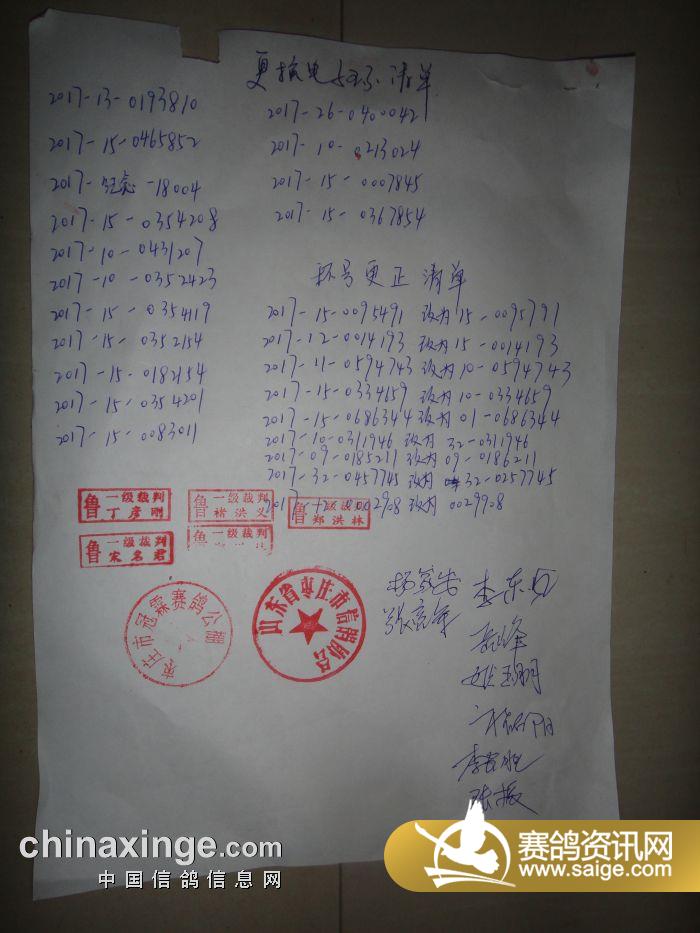 更换电子环清单
2017-13-0193810
2017-15-0465852
2017- -18004
2017-15-0354208
2017-10-0431207
2017-10-0352423
2017-15-0354119
2017-15-0352154
2017-15-0182154
2017-15-0354201
2017-15-0083011
2017-26-0400042
2017-10-0213024
2017-15-0007845
2017-15-0367854
环号更正清单
2017-15-0095491 改为15-0095791
2017-12-0014193 改为15-0014193
2017-11-0594743 改为10-0594743
2017-15-0334659 改为10-0334659
2017-15-0686344 改为01-0686344
2017-10-0311946 改为 32-0311946
2017-09-0185211 改为 09-0186211
2017-32-0457745 改为 32-0257745
2017-12-0002908 改为 0029908
鲁 一级裁判 丁彦刚
鲁 一级裁判 褚洪义
鲁 一级裁判 郑洪林
鲁 一级裁判 宋名君
枣庄市冠霖赛鸽公棚
山东省枣庄市信鸽协会
chinaxinge.com
中国信鸽信息网
赛鸽资讯网
www.saige.com